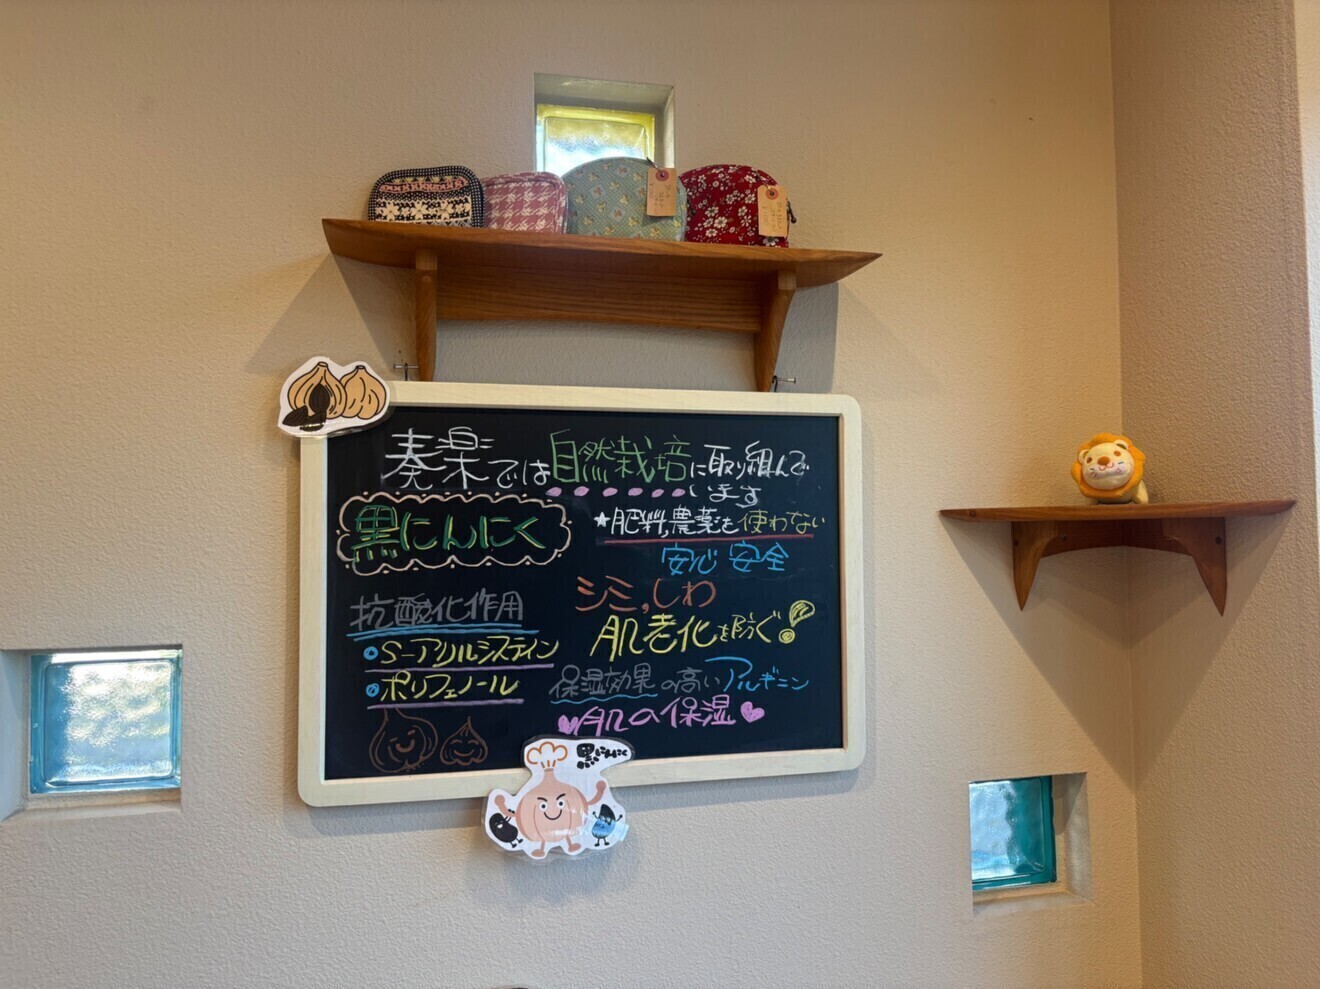 奏楽では自然栽培に取り組んで
います
黒にんにく
★肥料,農薬を使わない
安心 安全
シミ,しわ
肌老化を防ぐ!
抗酸化作用
•S-アリルシステイン
•ポリフェノール
保湿効果の高いアルギニン
♥肌の保湿♥
黒にんにく